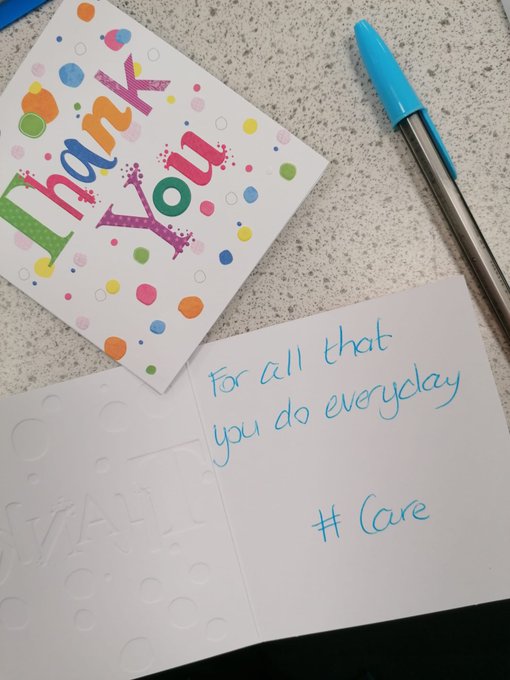 Thank
You
For all that
you do everyday
# Care